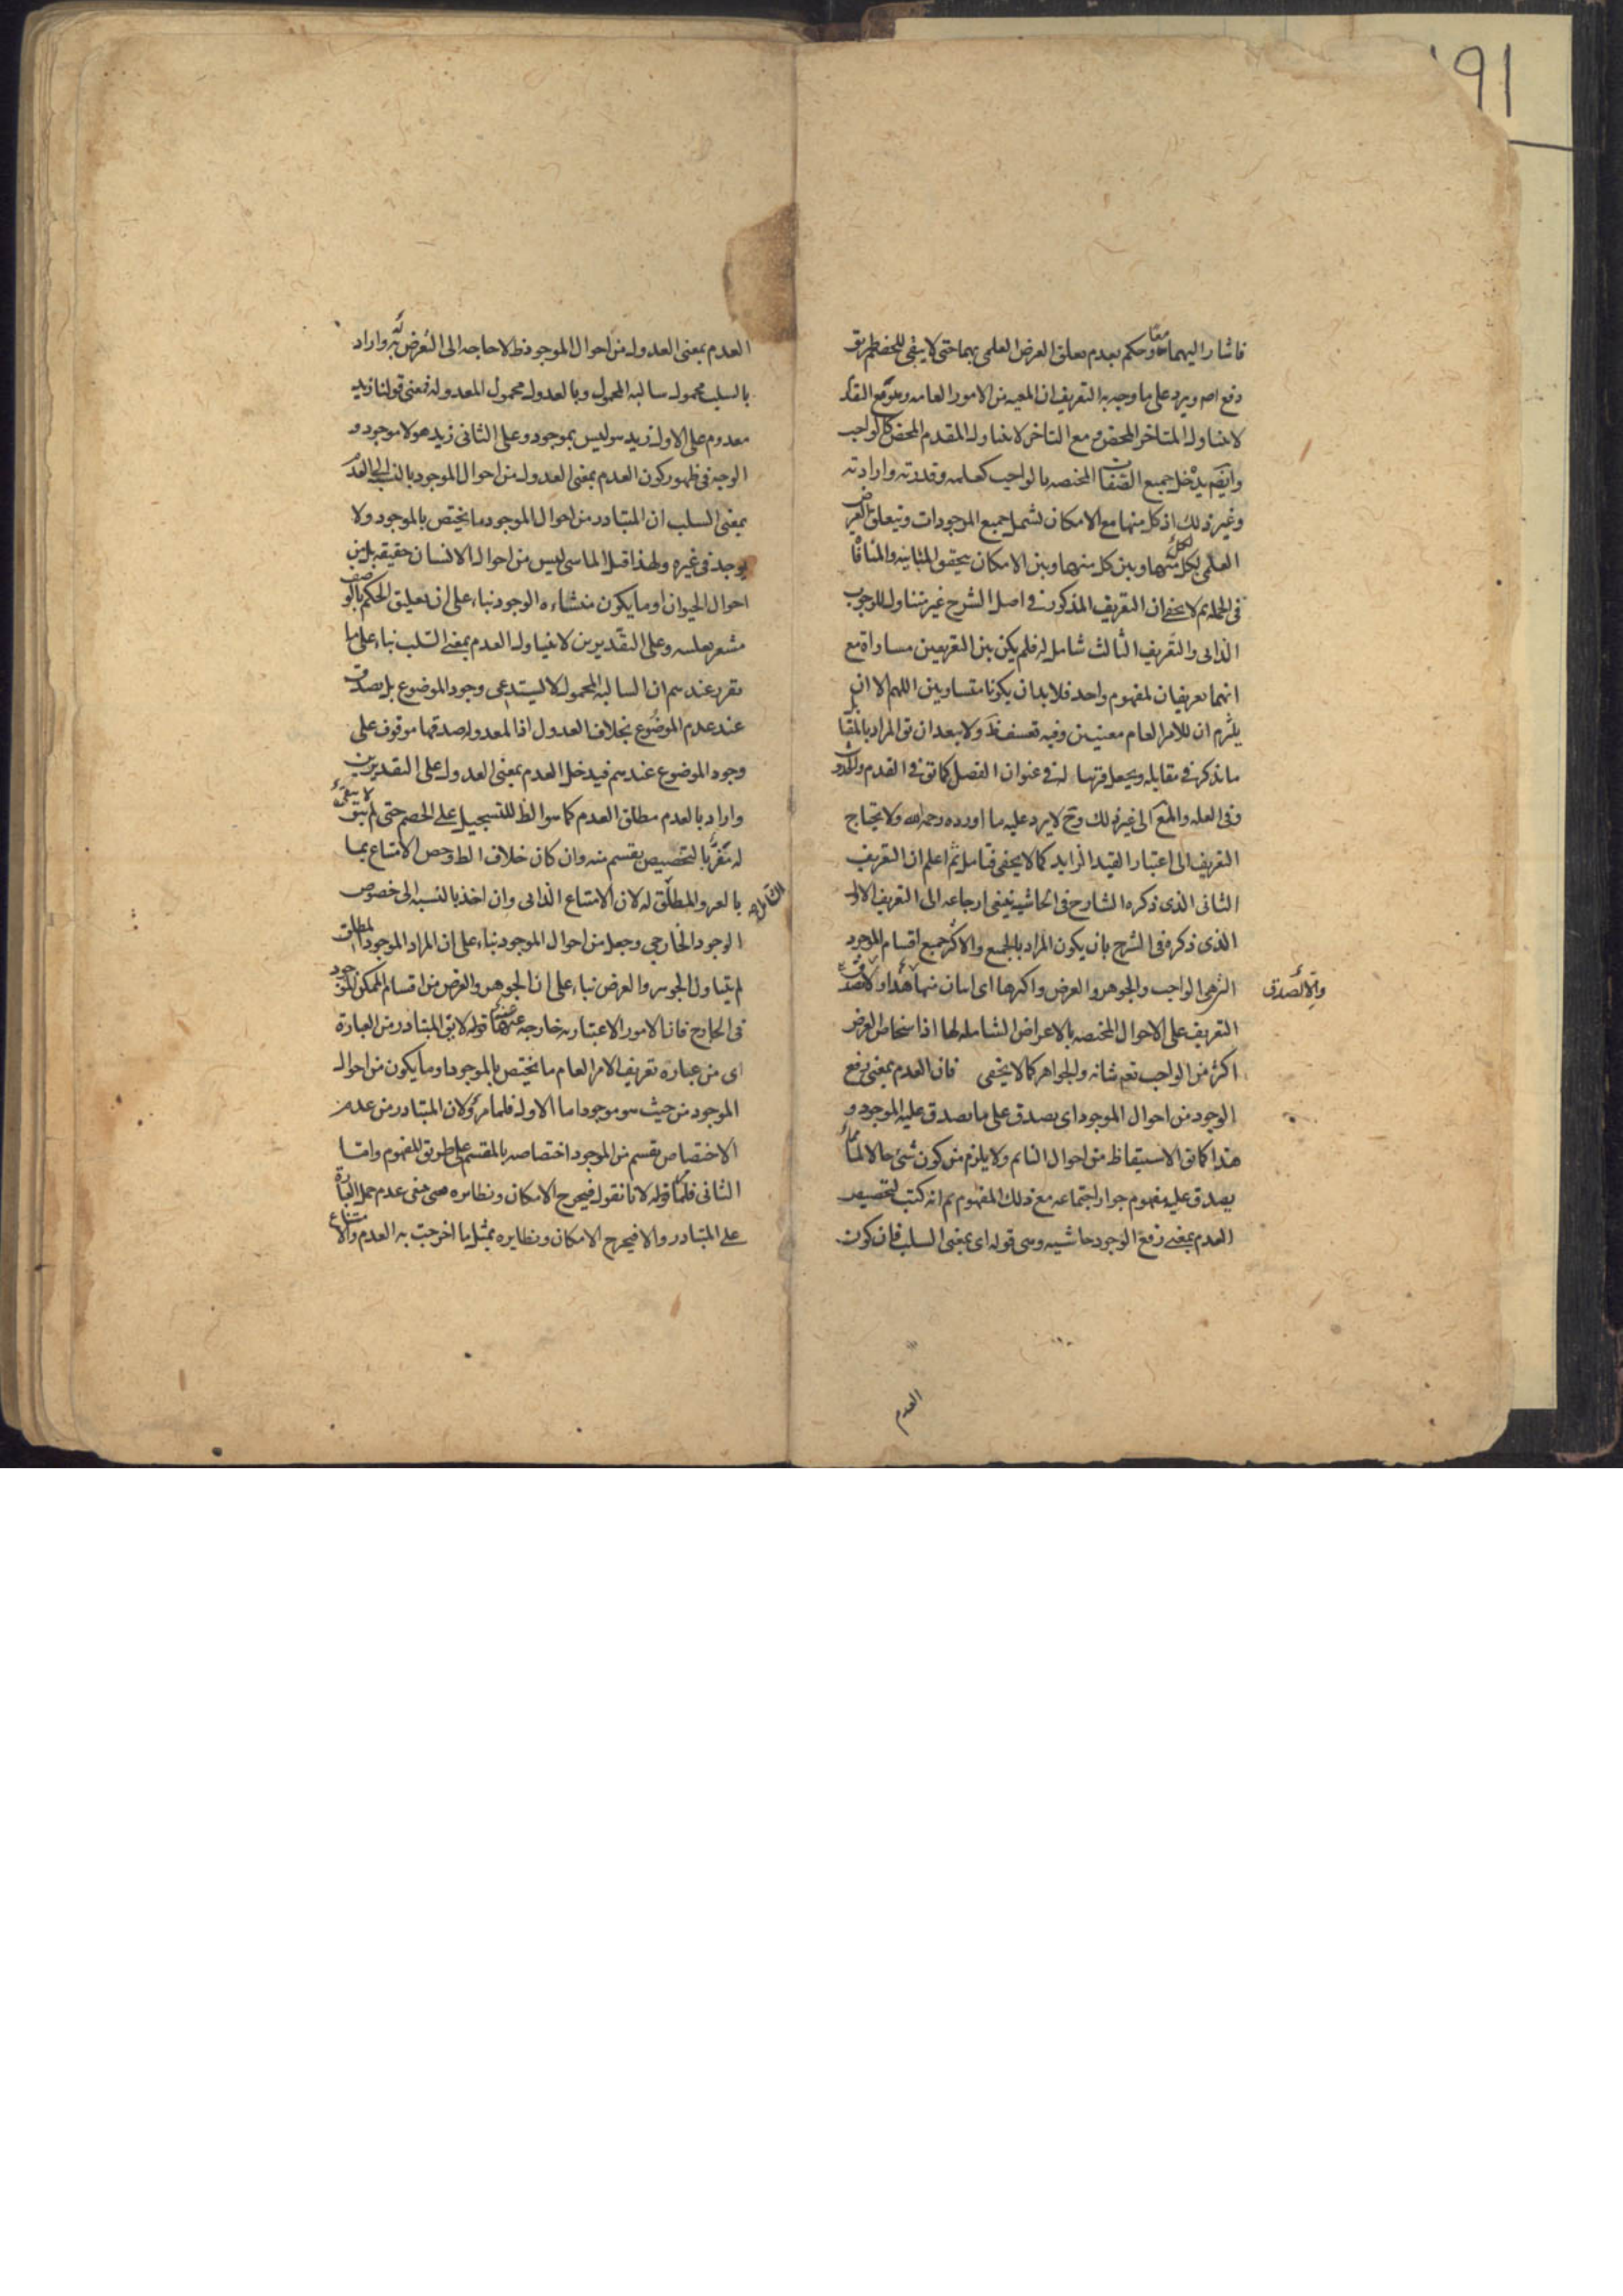 فاشار اليهما معا وحكم بعدم تعلق الغرض العلمى بهما حتى لا يبقى للخصم طريق
دفع اصم ويرد على ما وجه به التعريف ان المعيه من الامور العامه ومع التقدم
لا يتناول المتاخر المحض ومع التاخر لا يتناول المقدم المحض كالواجب
وايضم يدخل جميع الصفات المختصه بالواجب كعلمه وقدرته وارادته
وغير ذلك اذ كل منها مع الامكان تشمل جميع الموجودات ويتعلق الغرض
العلمى بكل منهما وبين كل منهما وبين الامكان يتحقق المباينه والمنافاة
فى الجمله ثم لا يخفى ان التعريف المذكور فى اصل الشرح غير متناول للوجوب
الذاتى والتعريف الثالث شامل له فلم يكن بين التعريفين مساواة مع
انهما تعريفان لمفهوم واحد فلا بد ان يكونا متساويين اللهم الا ان
يلتزم ان للامر العام معنيين وفيه تعسف ظ ولا يبعد ان يق المراد بالمقابل
ما يذكر فى مقابله ويجعل قرينا له فى عنوان الفصل كما يق فى القدم والحدوث
وفى العله والمع الى غير ذلك وح لا يرد عليه ما اورده رحمه الله ولا يحتاج
التعريف الى اعتبار القيد الزايد كما لا يخفى فتامل ثم اعلم ان التعريف
الثانى الذى ذكره الشارح فى الحاشيه ينبغى ارجاعه الى التعريف الاول
الذى ذكره فى الشرح بان يكون المراد بالجميع والاكثر جميع اقسام الموجود
التى هى الواجب والجوهر والعرض واكثرها اى اثنان منها
والا لصدق
التعريف على الاحوال المختصه بالاعراض الشامله لها اذ اشخاص العرض
اكثر من الواجب تعم شانه والجواهر كما لا يخفى فان العدم بمعنى رفع
الوجود من احوال الموجود اى يصدق على ما يصدق عليه الموجود و
هذا كما يق الاستيقاظ من احوال النائم ولا يلزم من كون شئ حالا لما
يصدق عليه مفهوم جواز اجتماعه مع ذلك المفهوم ثم انه كتب لتخصيص
العدم بمعنى رفع الوجود حاشيه وهى قوله اى بمعنى السلب فان كون
العدم
العدم بمعنى العدول من احوال الموجود ظ لا حاجه الى التعرض له واراد
بالسلب محمول سالبه المحمول وبالعدول محمول المعدوله فمعنى قولنا زيد
معدوم على الاول زيد هو ليس بموجود وعلى الثانى زيد هو لا موجود و
الوجه فى ظهور كون العدم بمعنى العدول من احوال الموجود بالنسبه الى العدم
بمعنى السلب ان المتبادر من احوال الموجود ما يختص بالموجود ولا
يوجد فى غيره ولهذا قيل الماشى ليس من احوال الانسان حقيقه بل من
احوال الحيوان او ما يكون منشاءه الوجود بناء على ان تعليق الحكم بالوصف
مشعر بعليته وعلى التقديرين لا يتناول العدم بمعنى السلب بناء على ما
تقرر عندهم ان السالبه المحمول لا يستدعى وجود الموضوع بل يصدق
عند عدم الموضوع بخلاف العدول اذ المعدوله صدقها موقوف على
وجود الموضوع عندهم فيدخل العدم بمعنى العدول على التقديرين
واراد بالعدم مطلق العدم كما هو الظ للتسجيل على الخصم حتى لم يبق
له مفر بالتخصيص بقسم منه وان كان خلاف الظ وخص الامتناع بما
بالعر والمطلق له لان الامتناع الذاتى وان اخذ بالنسبه الى خصوص
الوجود الخارجى وجعل من احوال الموجود بناء على ان المراد الموجود المطلق
لم يتناول الجوهر والعرض بناء على ان الجوهر والعرض من اقسام الممكن الموجود
فى الخارج فان الامور الاعتباريه خارجه عنهما قوله لا يق المتبادر من العبارة
اى من عبارة تعريف الامر العام ما يختص بالموجود او ما يكون من احوال
الموجود من حيث هو موجود اما الاول فلما مر ولان المتبادر من عدم
الاختصاص بقسم من الموجود اختصاصه بالمقسم على طريق المفهوم واما
الثانى فلما مر قوله لانا نقول فيخرج الامكان ونظايره حتى عدم حمل العبارة
على المتبادر والا فيخرج الامكان ونظايره بمثل ما اخرجت به العدم والامتناع